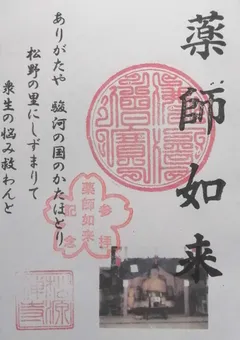 薬師如来
ありがたや 駿河の国のかたほとり
松野の里にしずまりて
衆生の悩み救わんと
参拝
薬師如来
記念